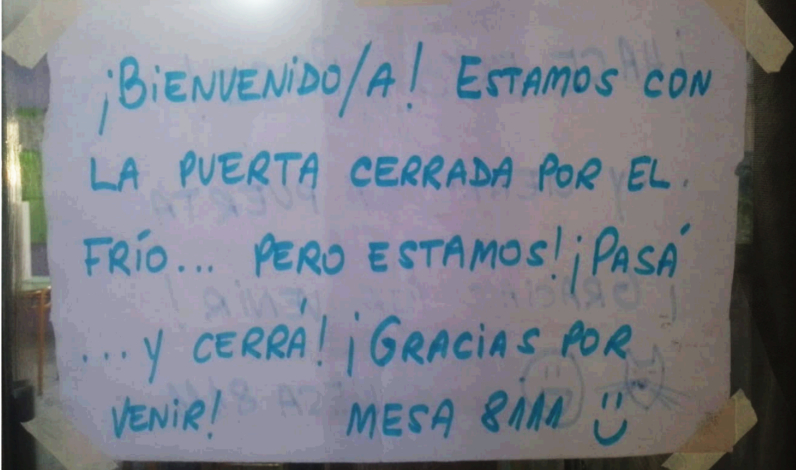 ¡BiENVENiDO/A! ESTAMOS CON
LA PUERTA CERRADA POR EL
FRÍO... PERO ESTAMOS! ¡PASÁ
...Y CERRÁ! ¡GRACiAS POR
VENIR! MESA 8111 :)